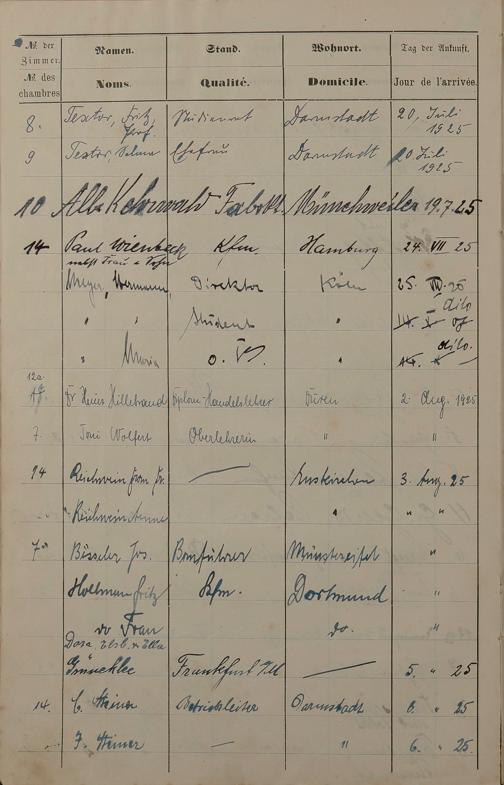 № der Zimmer. Namen. Stand. Wohnort. Tag der Ankunft.
№ des chambres Noms. Qualité. Domicile. Jour de l'arrivée.
8. Textor, Fritz, Prof. Studienrat Darmstadt 20. Juli 1925
9 Textor, Selma Ehefrau Darmstadt 20 Juli 1925
10 Alb. Fabrkt. Münchweiler 19.7.25
14 Paul Kfm. Hamburg 24. VII 25
nebst Frau u Sohn
Meyer, Hermann, Direktor Köln 25. 25
" " Student " dito
" Maria o. " dito.
12a
Dr. Heinr. Hillebrand Diplom-Handelslehrer Düren 2. Aug. 1925
7. Toni Wolfert Oberlehrerin " "
14 Reichwein — Euskirchen 3. Aug. 25
" Reichwein " " "
7a Jos. Münstereifel "
Holtmann Fritz Kfm. Dortmund "
do Frau do. "
Dora Elsb. u Ella
Frankfurt — 5. " 25
14. C. Steiner Betriebsleiter Darmstadt 6. " 25
F. Steiner — " 6. " 25.